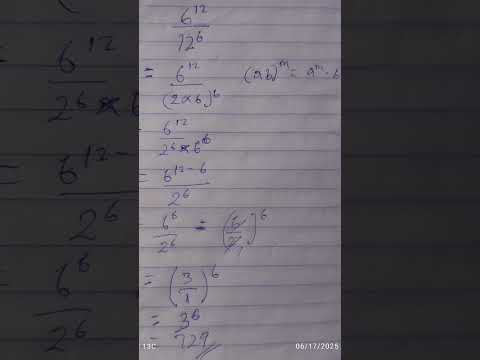 6¹²
12⁶
= 6¹²
(2×6)⁶
(ab)ᵐ = aᵐ.b
6¹²
2⁶×6⁶
= 6¹²⁻⁶
2⁶
6⁶
2⁶
= (6/2)⁶
= (3/1)⁶
= 3⁶
= 729
13C
06/17/2025